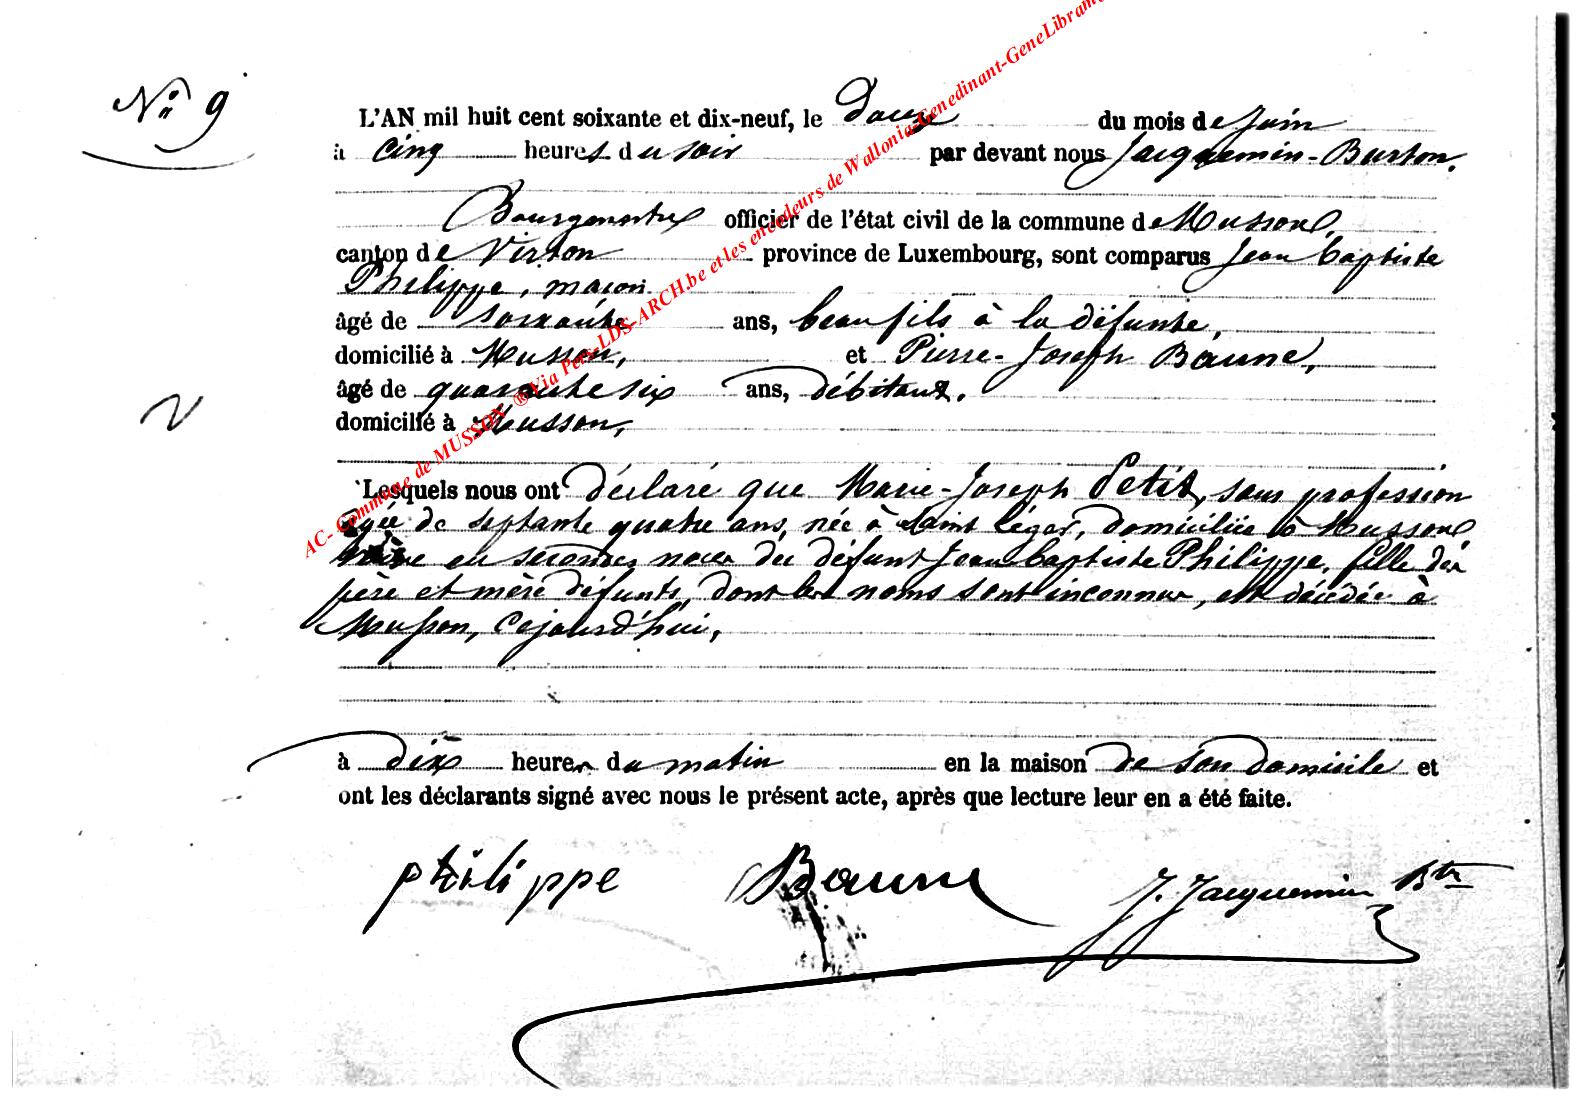 N° 9
L'AN mil huit cent soixante et dix-neuf, le douze du mois de Juin
à cinq heures du soir par devant nous Jacquemin-Burton,
Bourgmestre officier de l'état civil de la commune de Musson,
canton de Virton province de Luxembourg, sont comparus Jean baptiste
Philippe, maçon
âgé de soixante ans, beau fils à la défunte,
domicilié à Musson, et Pierre-Joseph Baune,
âgé de quarante six ans, débitant.
domicilié à Musson,
Lesquels nous ont déclaré que Marie-Joseph Petit, sans profession
agée de septante quatre ans, née à Saint Léger, domiciliée à Musson,
veuve en secondes noces du défunt Jean baptiste Philippe, fille des
père et mère défunts, dont les noms sont inconnus, est décédée à
Musson, cejourd'hui,
à dix heures du matin en la maison de son domicile et
ont les déclarants signé avec nous le présent acte, après que lecture leur en a été faite.
philippe Baune J. Jacquemin Btn
AC- Commune de MUSSON ® Via Pers-LDS-ARCH.be et les encodeurs de Wallonia-Genedinant-GeneLibram